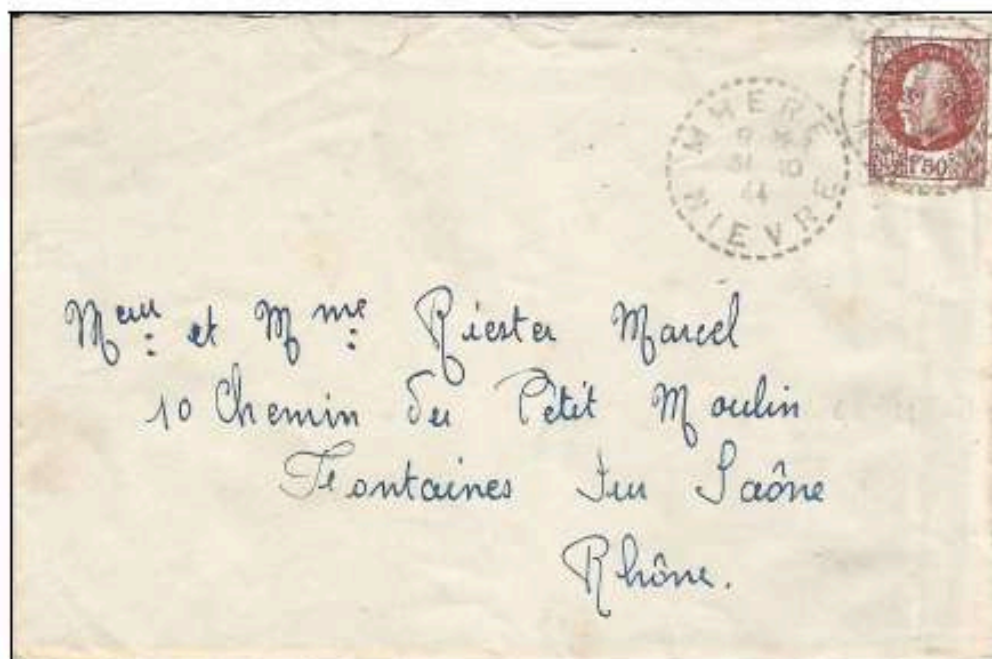 MHERE
31 10
44
NIEVRE
1F50
Meur et Mme Riester Marcel
10 Chemin du Petit Moulin
Fontaines Sur Saône
Rhône.